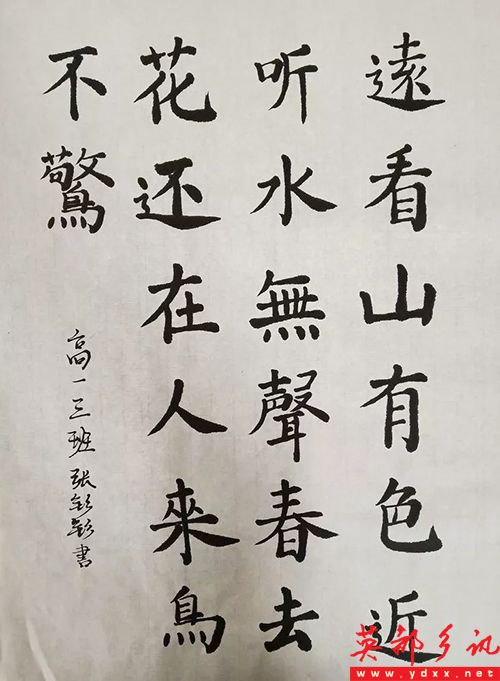 遠看山有色近
听水無聲春去
花还在人來鳥
不驚
高一三班張書
英都乡讯
www.ydxx.net